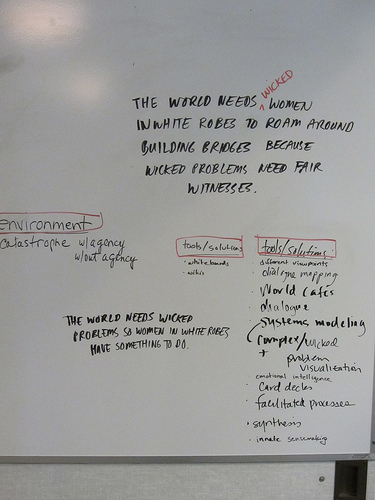 WICKED
THE WORLD NEEDS ^ WOMEN
IN WHITE ROBES TO ROAM AROUND
BUILDING BRIDGES BECAUSE
WICKED PROBLEMS NEED FAIR
WITNESSES.
environment
catastrophe w/agency
w/out agency
THE WORLD NEEDS WICKED
PROBLEMS SO WOMEN IN WHITE ROBES
HAVE SOMETHING TO DO.
tools/solutions
· whiteboards
· wikis
tools/solutions
different viewpoints
· dialogue mapping
· World Cafés
· dialogue
· systems modeling
complex/wicked
+ problem
visualization
emotional intelligence
· Card decks
· facilitated processes
· synthesis
· innate sensemaking